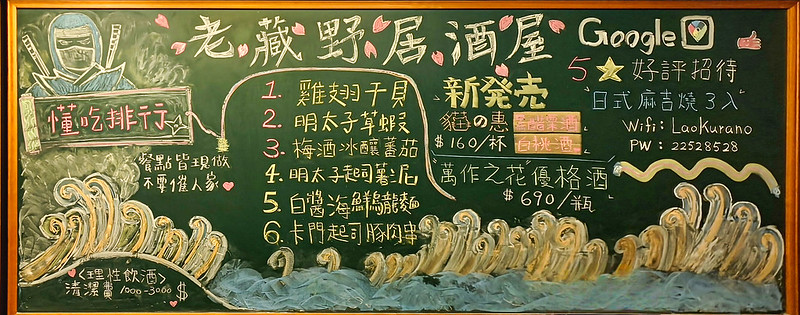 老藏野居酒屋
Google
5★好評招待
"日式麻吉燒3入"
Wifi: LaoKurano
PW: 22528528
懂吃排行
餐點皆現做
不要催人家
1. 雞翅干貝
2. 明太子草蝦
3. 梅酒冰釀蕃茄
4. 明太子起司薯泥
5. 白醬海鮮烏龍麵
6. 卡門起司豚肉串
新発売
貓の惠
$160/杯
白桃酒
"萬作之花"優格酒
$690/瓶
<理性飲酒>
清潔費 1000-3000 $